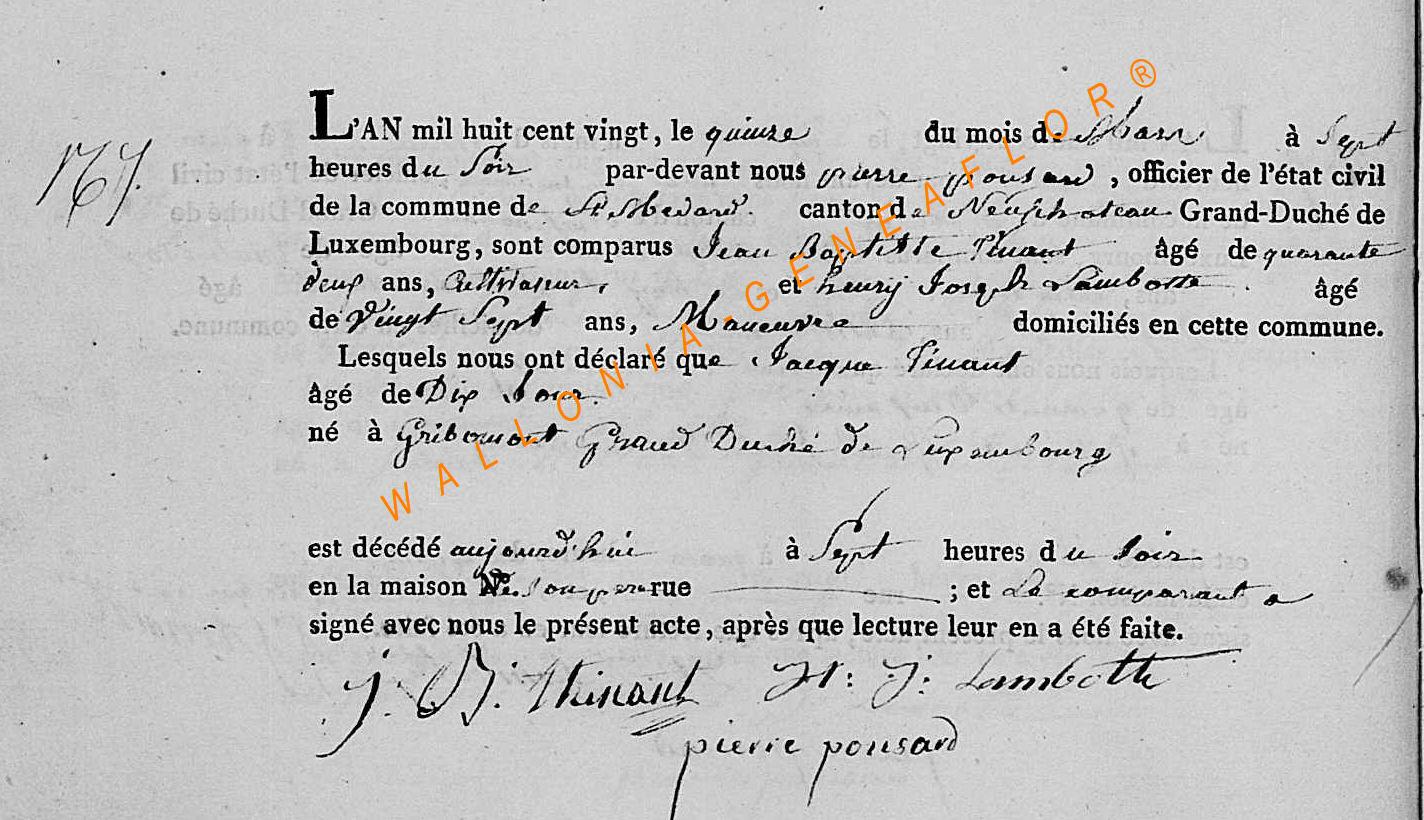 L'AN mil huit cent vingt, le quinze du mois de Mars à Sept
167.
heures du Soir par-devant nous pierre pousard, officier de l'état civil
de la commune de St Medard. canton de Neufchateau Grand-Duché de
Luxembourg, sont comparus Jean Baptiste Tinant âgé de quarante
deux ans, Cultivateur, et henry Joseph Lambotte. âgé
de Vingt Sept ans, Maneuvre domiciliés en cette commune.
Lesquels nous ont déclaré que Jacque Tinant
âgé de Dix Jour.
né à Gribomont Grand Duché de Luxembourg
est décédé aujourd'hui à Sept heures du Soir
en la maison No. Son pere rue ; et Le comparant a
signé avec nous le présent acte, après que lecture leur en a été faite.
J. B. Thinant H: J: Lambotte
pierre pousard
WALLONIA-GENEAFLOR®